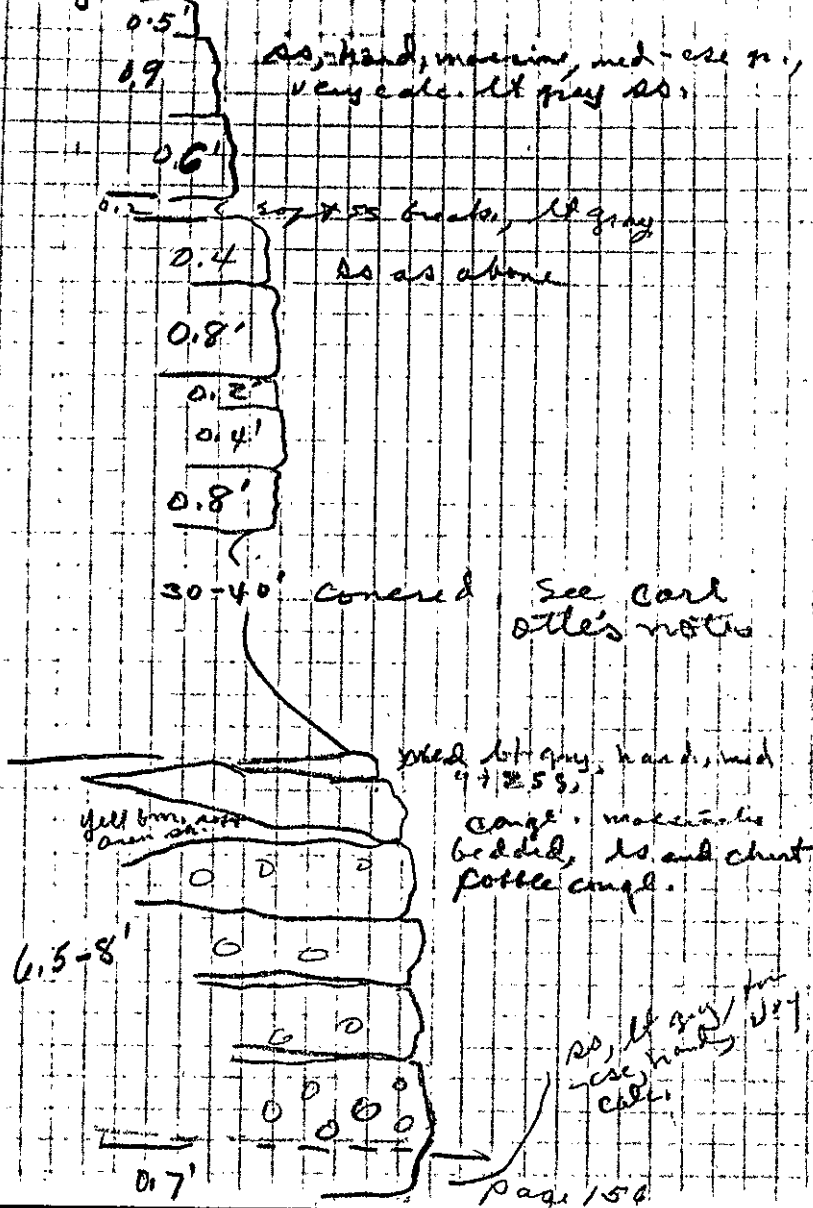 0.5'
0.9
ss, hard, massive, med-cse gr.,
very calc. lt gray ss.
0.6'
0.2
soft ss breaks, lt gray
0.4
ss as above
0.8'
0.2'
0.4'
0.8'
30-40' covered See Carl
Otte's notes
lt gray, hard, med
ss,
congl. massive
bedded, ls and chert
cobble congl.
yell brn. soft
aren sh.
6.5-8'
ss, lt gray,
-cse, hard, very
calc.
0.7'
page 156